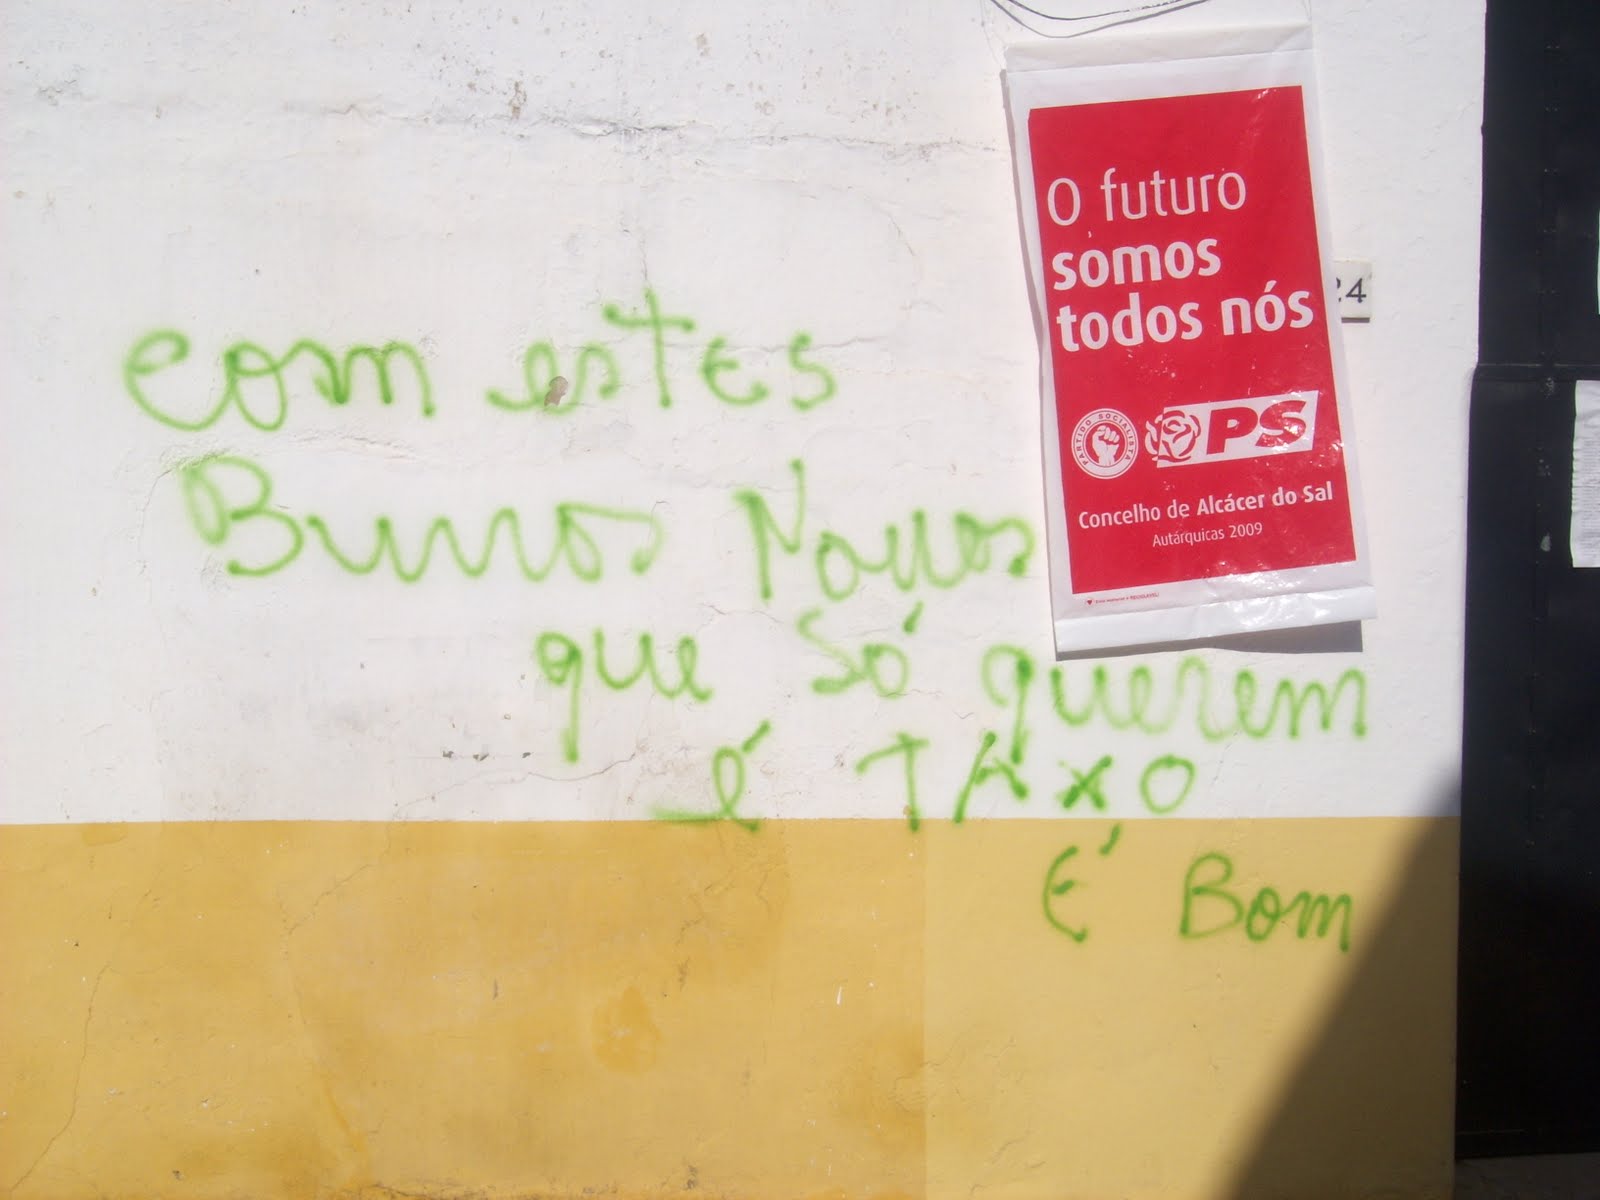 com estes
Burros Novos
que só querem
é TAXO
É Bom
O futuro
somos
todos nós
PARTIDO SOCIALISTA
PS
Concelho de Alcácer do Sal
Autárquicas 2009
24